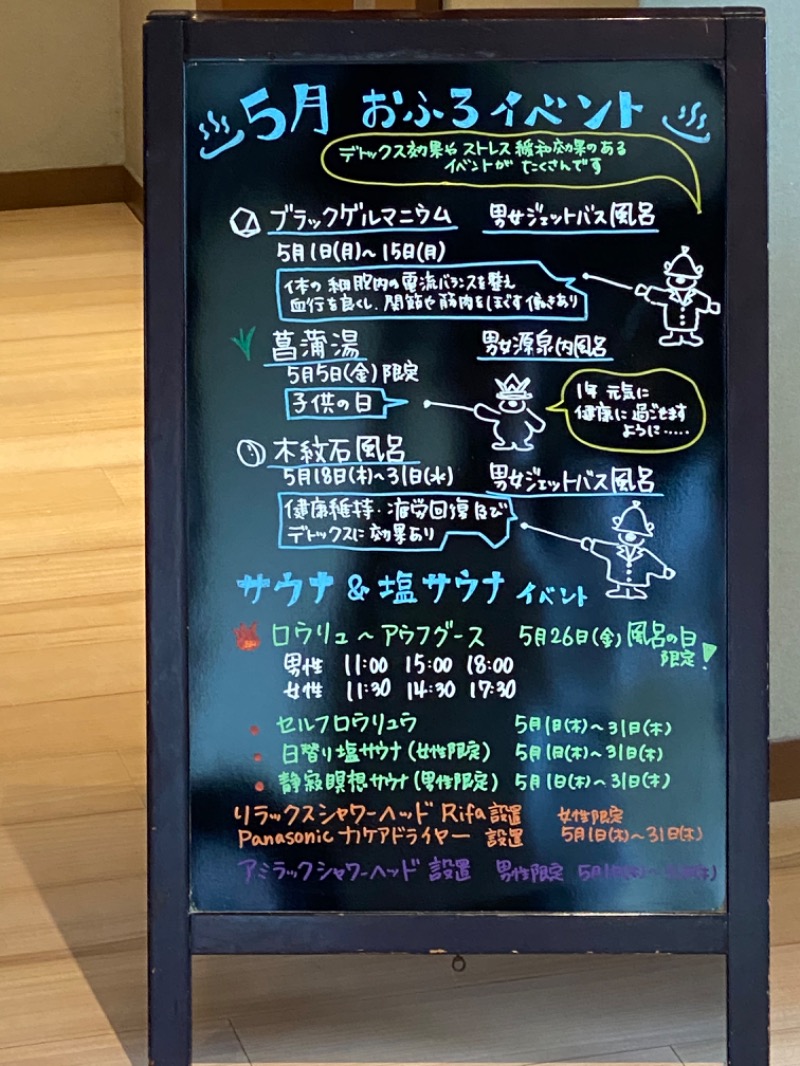 5月 おふろイベント
デトックス効果やストレス緩和効果のある
イベントがたくさんです
ブラックゲルマニウム 男女ジェットバス風呂
5月1日(月)〜15日(月)
体の細胞内の電流バランスを整え
血行を良くし、関節や筋肉をほぐす働きあり
菖蒲湯 男女源泉内風呂
5月5日(金)限定
子供の日
1年 元気に
健康に過ごせます
ように……
木紋石風呂
5月18日(木)〜31日(水) 男女ジェットバス風呂
健康維持・疲労回復及び
デトックスに効果あり
サウナ&塩サウナ イベント
ロウリュ〜アウフグース 5月26日(金)風呂の日
限定!
男性 11:00 15:00 18:00
女性 11:30 14:30 17:30
セルフロウリュウ 5月1日(木)〜31日(木)
日替り塩サウナ(女性限定) 5月1日(木)〜31日(木)
静寂瞑想サウナ(男性限定) 5月1日(木)〜31日(木)
リラックスシャワーヘッド Rifa設置 女性限定
Panasonic カケアドライヤー 設置 5月1日(木)〜31日(木)
アミラックシャワーヘッド 設置 男性限定